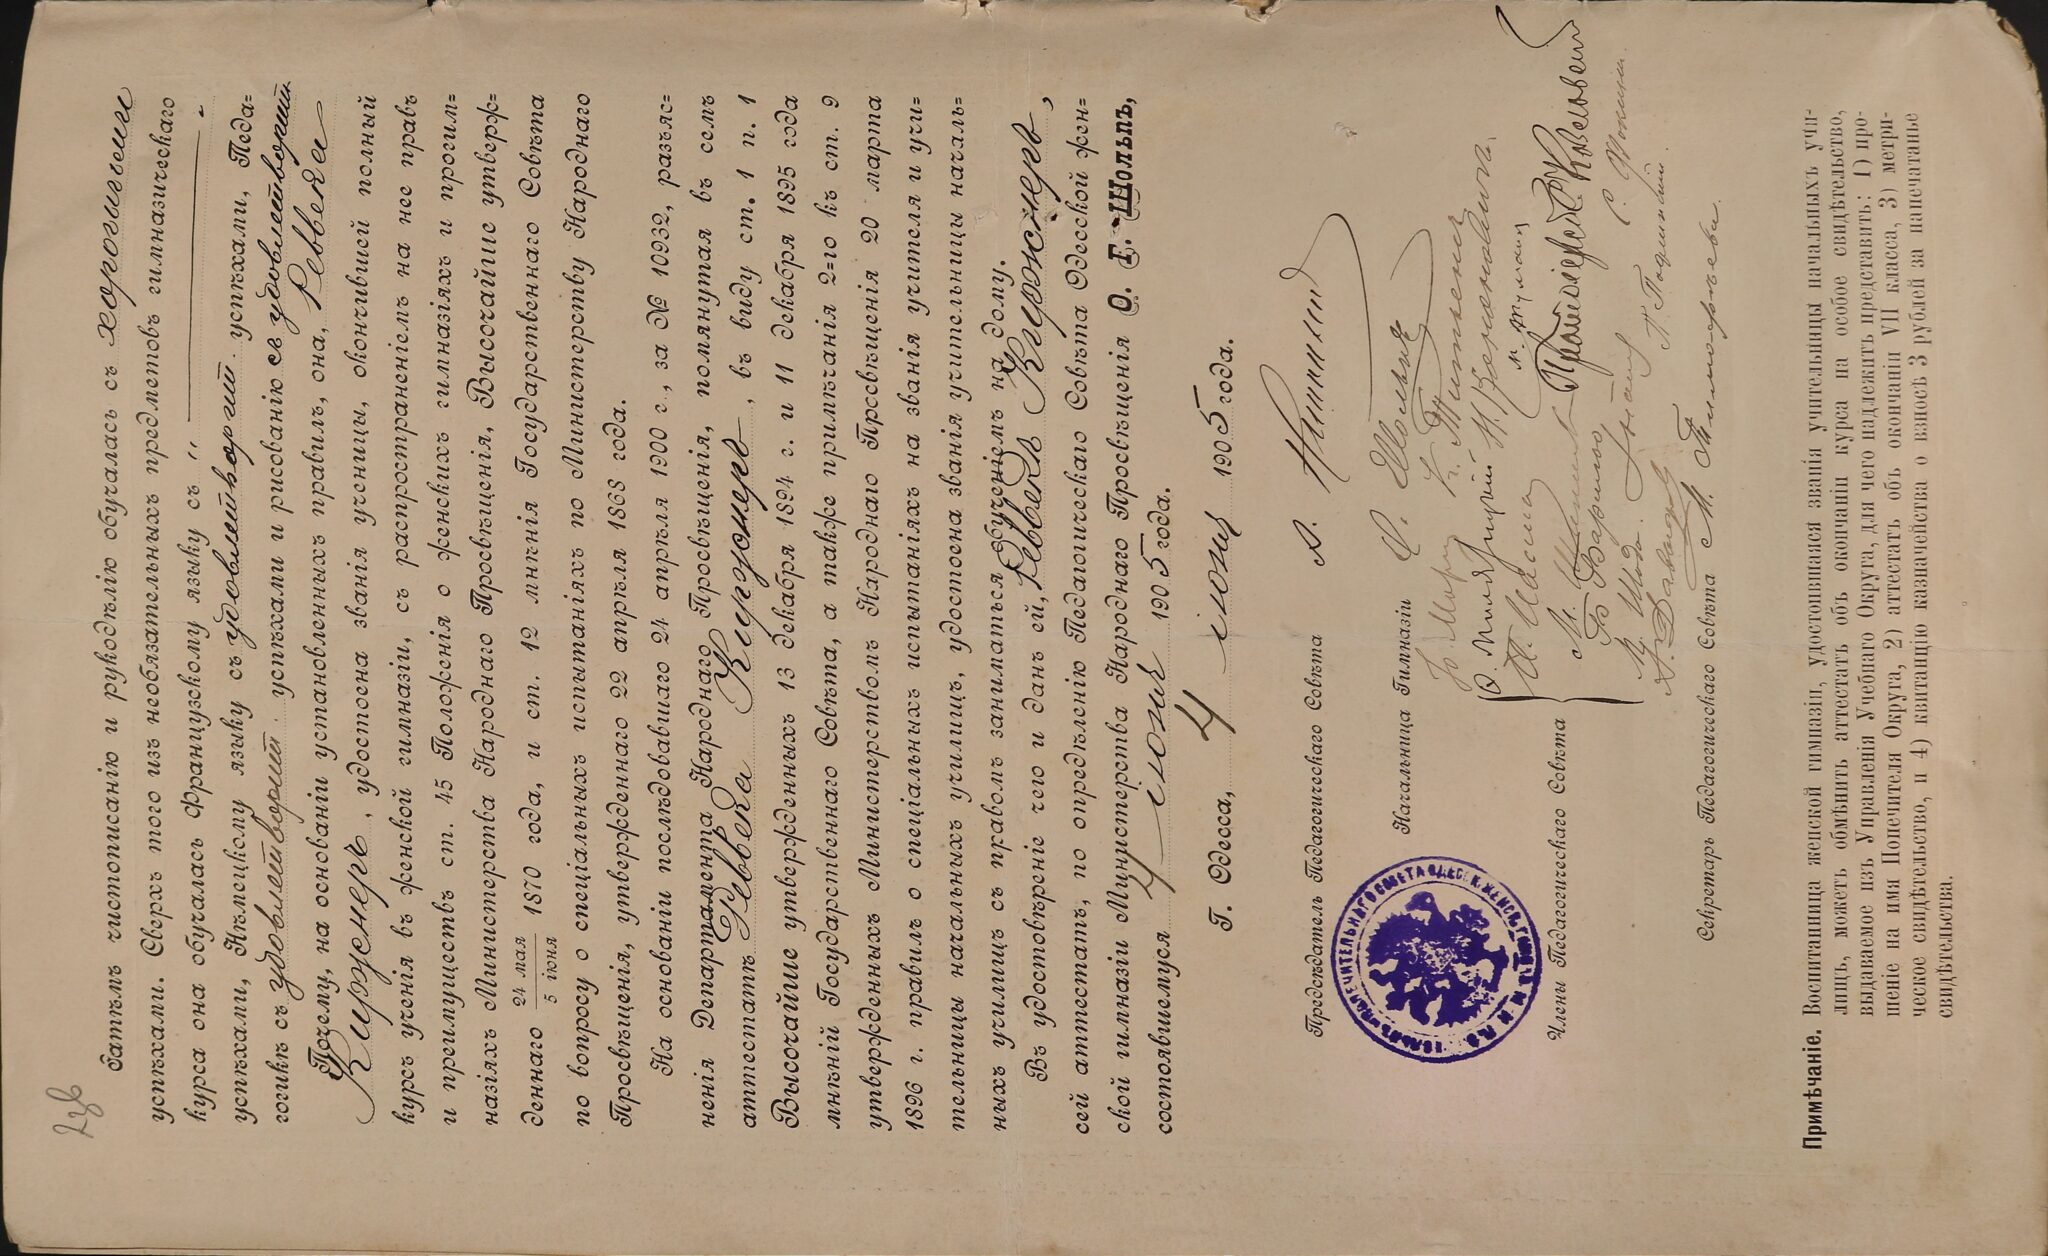 датѣмъ чистописанію и рукодѣлію обучалась съ хорошими
успѣхами. Сверхъ того изъ необязательныхъ предметовъ гимназическаго
курса она обучалась Французскому языку съ „ — „
успѣхами, Нѣмецкому языку съ удовлетворит. успѣхами, Педа=
гогикѣ съ удовлетворит. успѣхами и рисованію съ удовлетворит.
Почему, на основаніи установленныхъ правилъ, она, Реввека
Киржнеръ, удостоена званія ученицы, окончившей полный
курсъ ученія въ женской гимназіи, съ распространеніемъ на нее правъ
и преимуществъ ст. 45 Положенія о женскихъ гимназіяхъ и прогим=
назіяхъ Министерства Народнаго Просвѣщенія, Высочайше утверж=
деннаго 24 мая / 5 іюня 1870 года, и ст. 12 мнѣнія Государственнаго Совѣта
по вопросу о спеціальныхъ испытаніяхъ по Министерству Народнаго
Просвѣщенія, утвержденнаго 22 апрѣля 1868 года.
На основаніи послѣдовавшаго 24 апрѣля 1900 г., за № 10932, разъяс=
ненія Департамента Народнаго Просвѣщенія, помянутая въ семъ
аттестатѣ Реввека Киржнеръ, въ виду ст. 1 п. 1
Высочайше утвержденныхъ 13 декабря 1894 г. и 11 декабря 1895 года
мнѣній Государственнаго Совѣта, а также примѣчанія 2=го къ ст. 9
утвержденныхъ Министерствомъ Народнаго Просвѣщенія 20 марта
1896 г. правилъ о спеціальныхъ испытаніяхъ на званія учителя и учи=
тельницы начальныхъ училищъ, удостоена званія учительницы началь=
ныхъ училищъ съ правомъ заниматься обученіемъ на дому.
Въ удостовѣреніе чего и данъ ей, Реввекѣ Киржнеръ,
сей аттестатъ, по опредѣленію Педагогическаго Совѣта Одесской жен=
ской гимназіи Министерства Народнаго Просвѣщенія О. Г. Шольпъ,
состоявшемуся 4 іюня 1905 года.
Г. Одесса, 4 іюня 1905 года.
Предсѣдатель Педагогическаго Совѣта
Начальница Гимназіи О. Шольпъ
Члены Педагогическаго Совѣта
Секретарь Педагогическаго Совѣта
Примѣчаніе. Воспитанница женской гимназіи, удостоившаяся званія учительницы начальныхъ учи-
лищъ, можетъ обмѣнить аттестатъ объ окончаніи курса на особое свидѣтельство,
выдаваемое изъ Управленія Учебнаго Округа, для чего надлежитъ представить: 1) про-
шеніе на имя Попечителя Округа, 2) аттестатъ объ окончаніи VII класса, 3) метри-
ческое свидѣтельство, и 4) квитанцію казначейства о взносѣ 3 рублей за напечатанье
свидѣтельства.